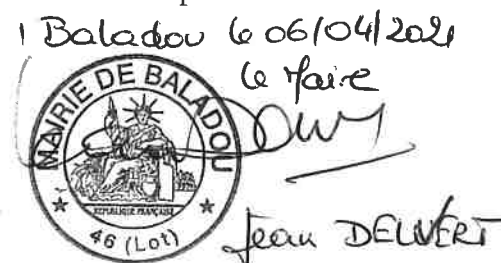 Baladou le 06/04/2021
le Maire
MAIRIE DE BALADOU
REPUBLIQUE FRANÇAISE
46 (Lot)
Jean DELVERT